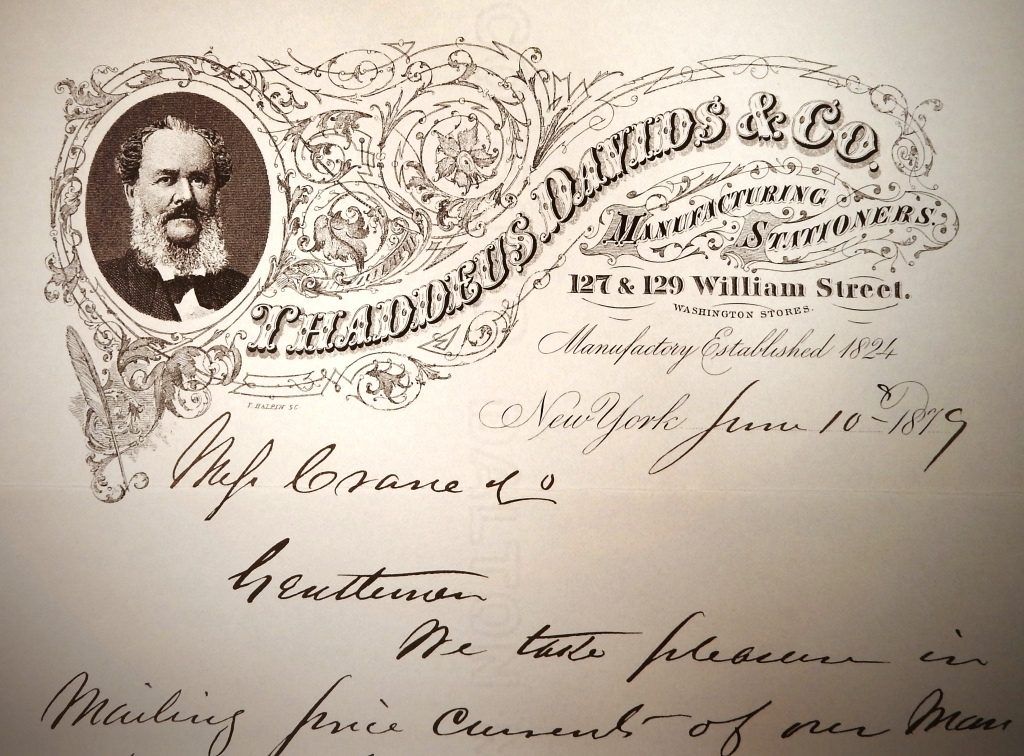 THADDEUS DAVIDS & CO.
MANUFACTURING
STATIONERS.
127 & 129 William Street.
WASHINGTON STORES.
Manufactory Established 1824
T. HALPIN SC
New York June 10th 1879
Mess Crane & Co
Gentlemen
We take pleasure in
Mailing price currents of our Man